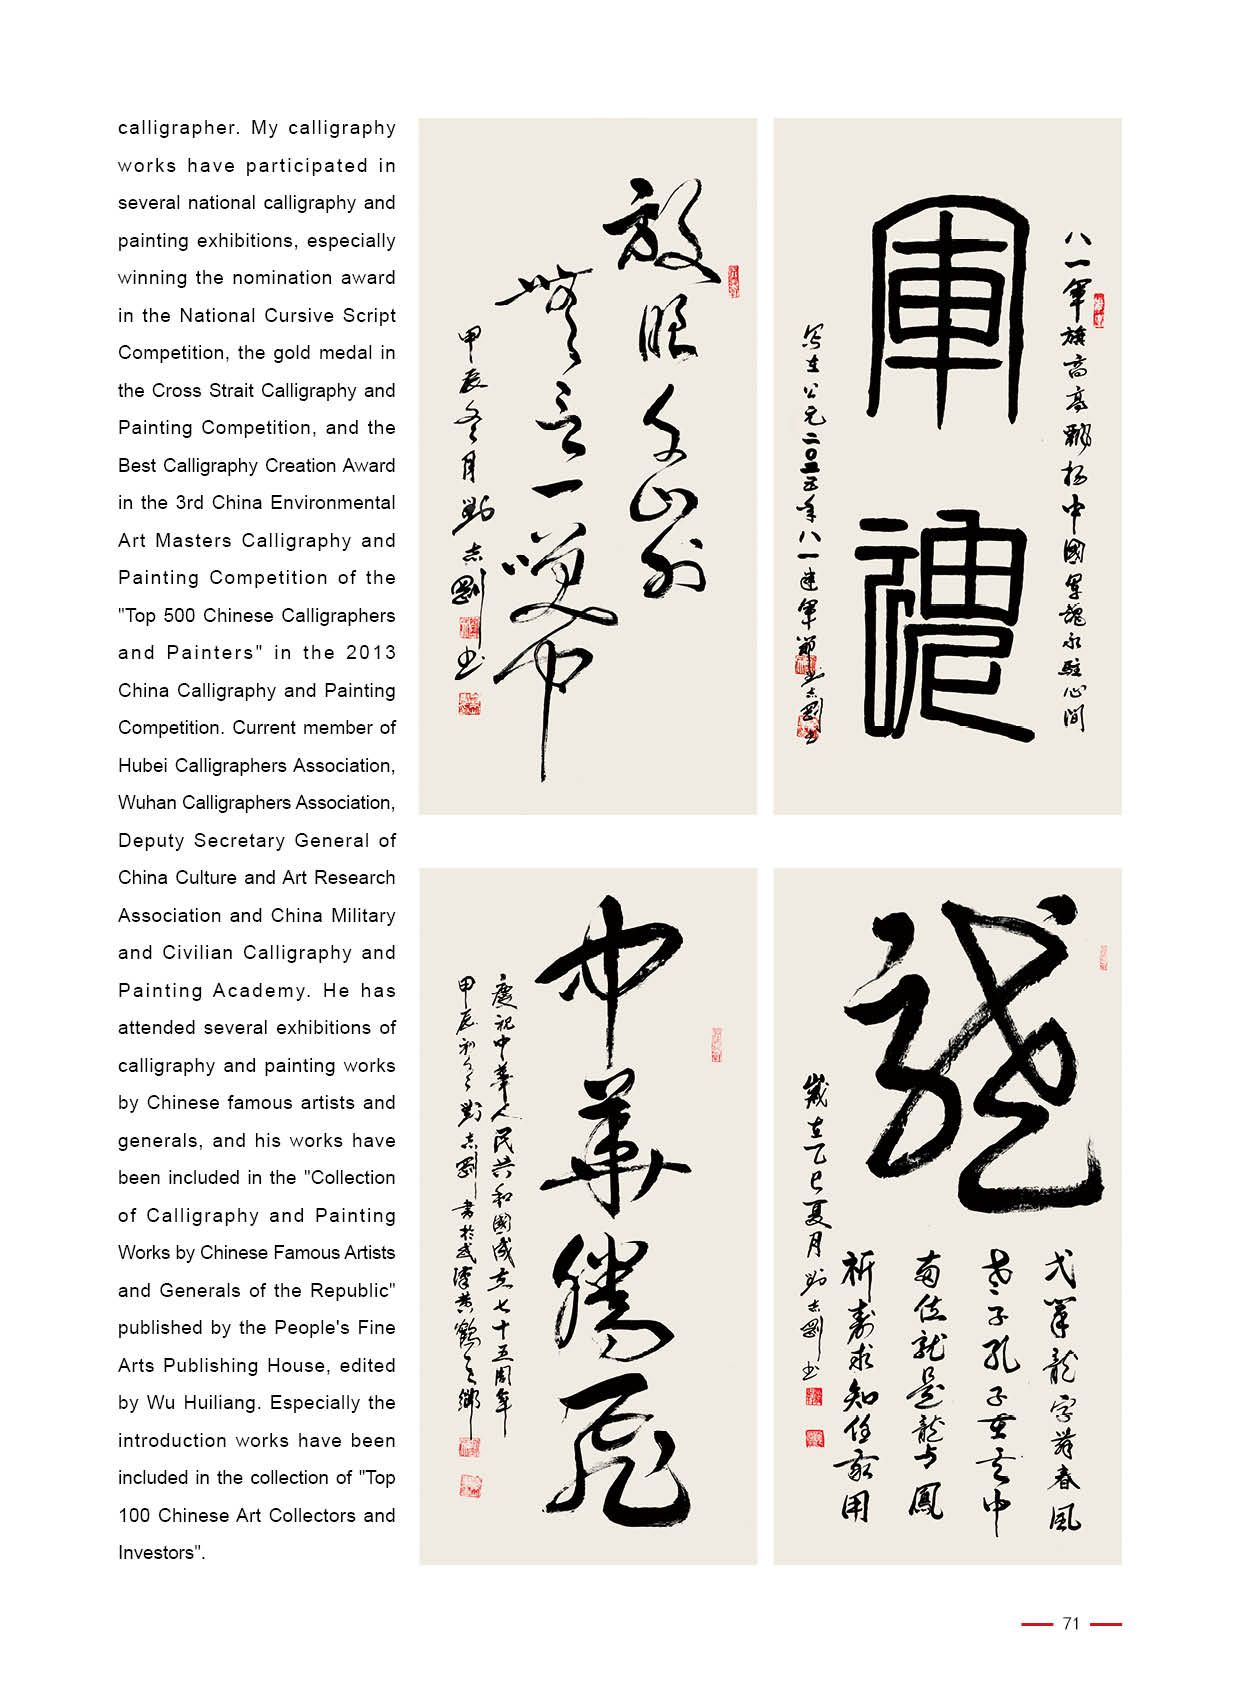 calligrapher. My calligraphy
works have participated in
several national calligraphy and
painting exhibitions, especially
winning the nomination award
in the National Cursive Script
Competition, the gold medal in
the Cross Strait Calligraphy and
Painting Competition, and the
Best Calligraphy Creation Award
in the 3rd China Environmental
Art Masters Calligraphy and
Painting Competition of the
"Top 500 Chinese Calligraphers
and Painters" in the 2013
China Calligraphy and Painting
Competition. Current member of
Hubei Calligraphers Association,
Wuhan Calligraphers Association,
Deputy Secretary General of
China Culture and Art Research
Association and China Military
and Civilian Calligraphy and
Painting Academy. He has
attended several exhibitions of
calligraphy and painting works
by Chinese famous artists and
generals, and his works have
been included in the "Collection
of Calligraphy and Painting
Works by Chinese Famous Artists
and Generals of the Republic"
published by the People's Fine
Arts Publishing House, edited
by Wu Huiliang. Especially the
introduction works have been
included in the collection of "Top
100 Chinese Art Collectors and
Investors".
放眼文山外
無言一嘆中
甲辰冬月劉志剛書
八一軍旗高高飘扬中國軍魂永駐心间
軍魂
写在公元二〇二五年八一建軍節劉志剛書
中華騰飛
慶祝中華人民共和國成立七十五周年
甲辰初冬劉志剛書於武漢黄鶴之鄉
龍
龍字舞春風
老子孔子
就是龍与鳳
祈壽求知任家用
歲在乙巳夏月劉志剛书
71